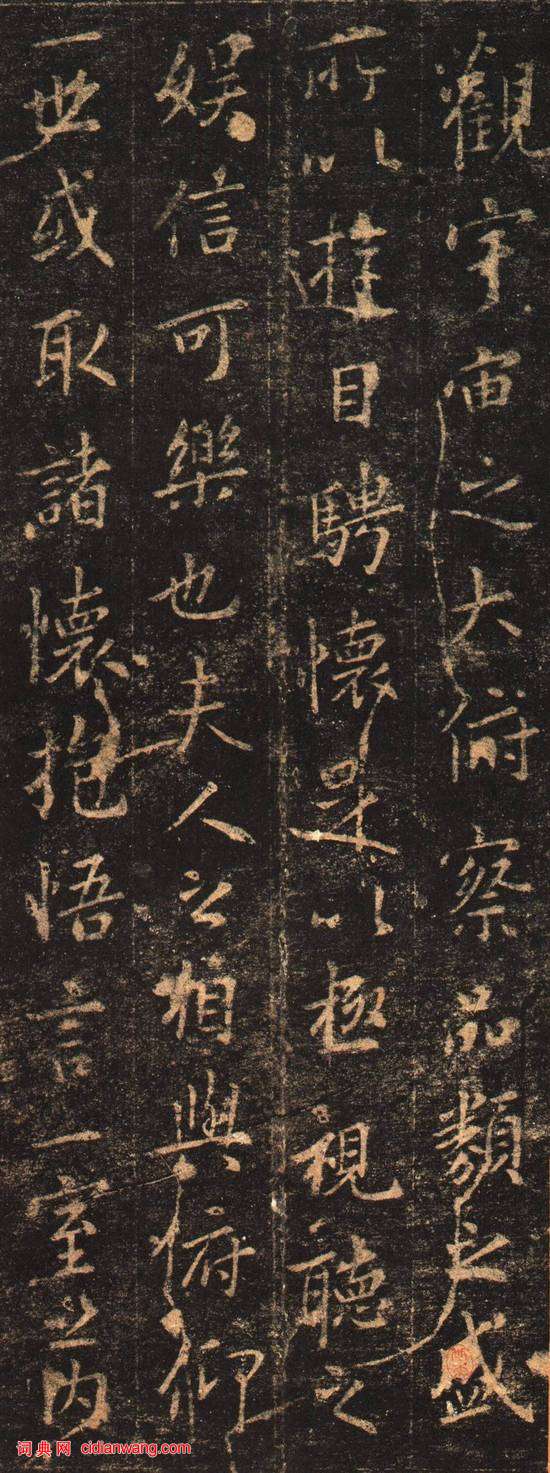 觀宇宙之大俯察品類之盛
所以遊目騁懷足以極視聽之
娛信可樂也夫人之相與俯仰
一世或取諸懷抱悟言一室之內
词典网 cidianwang.com